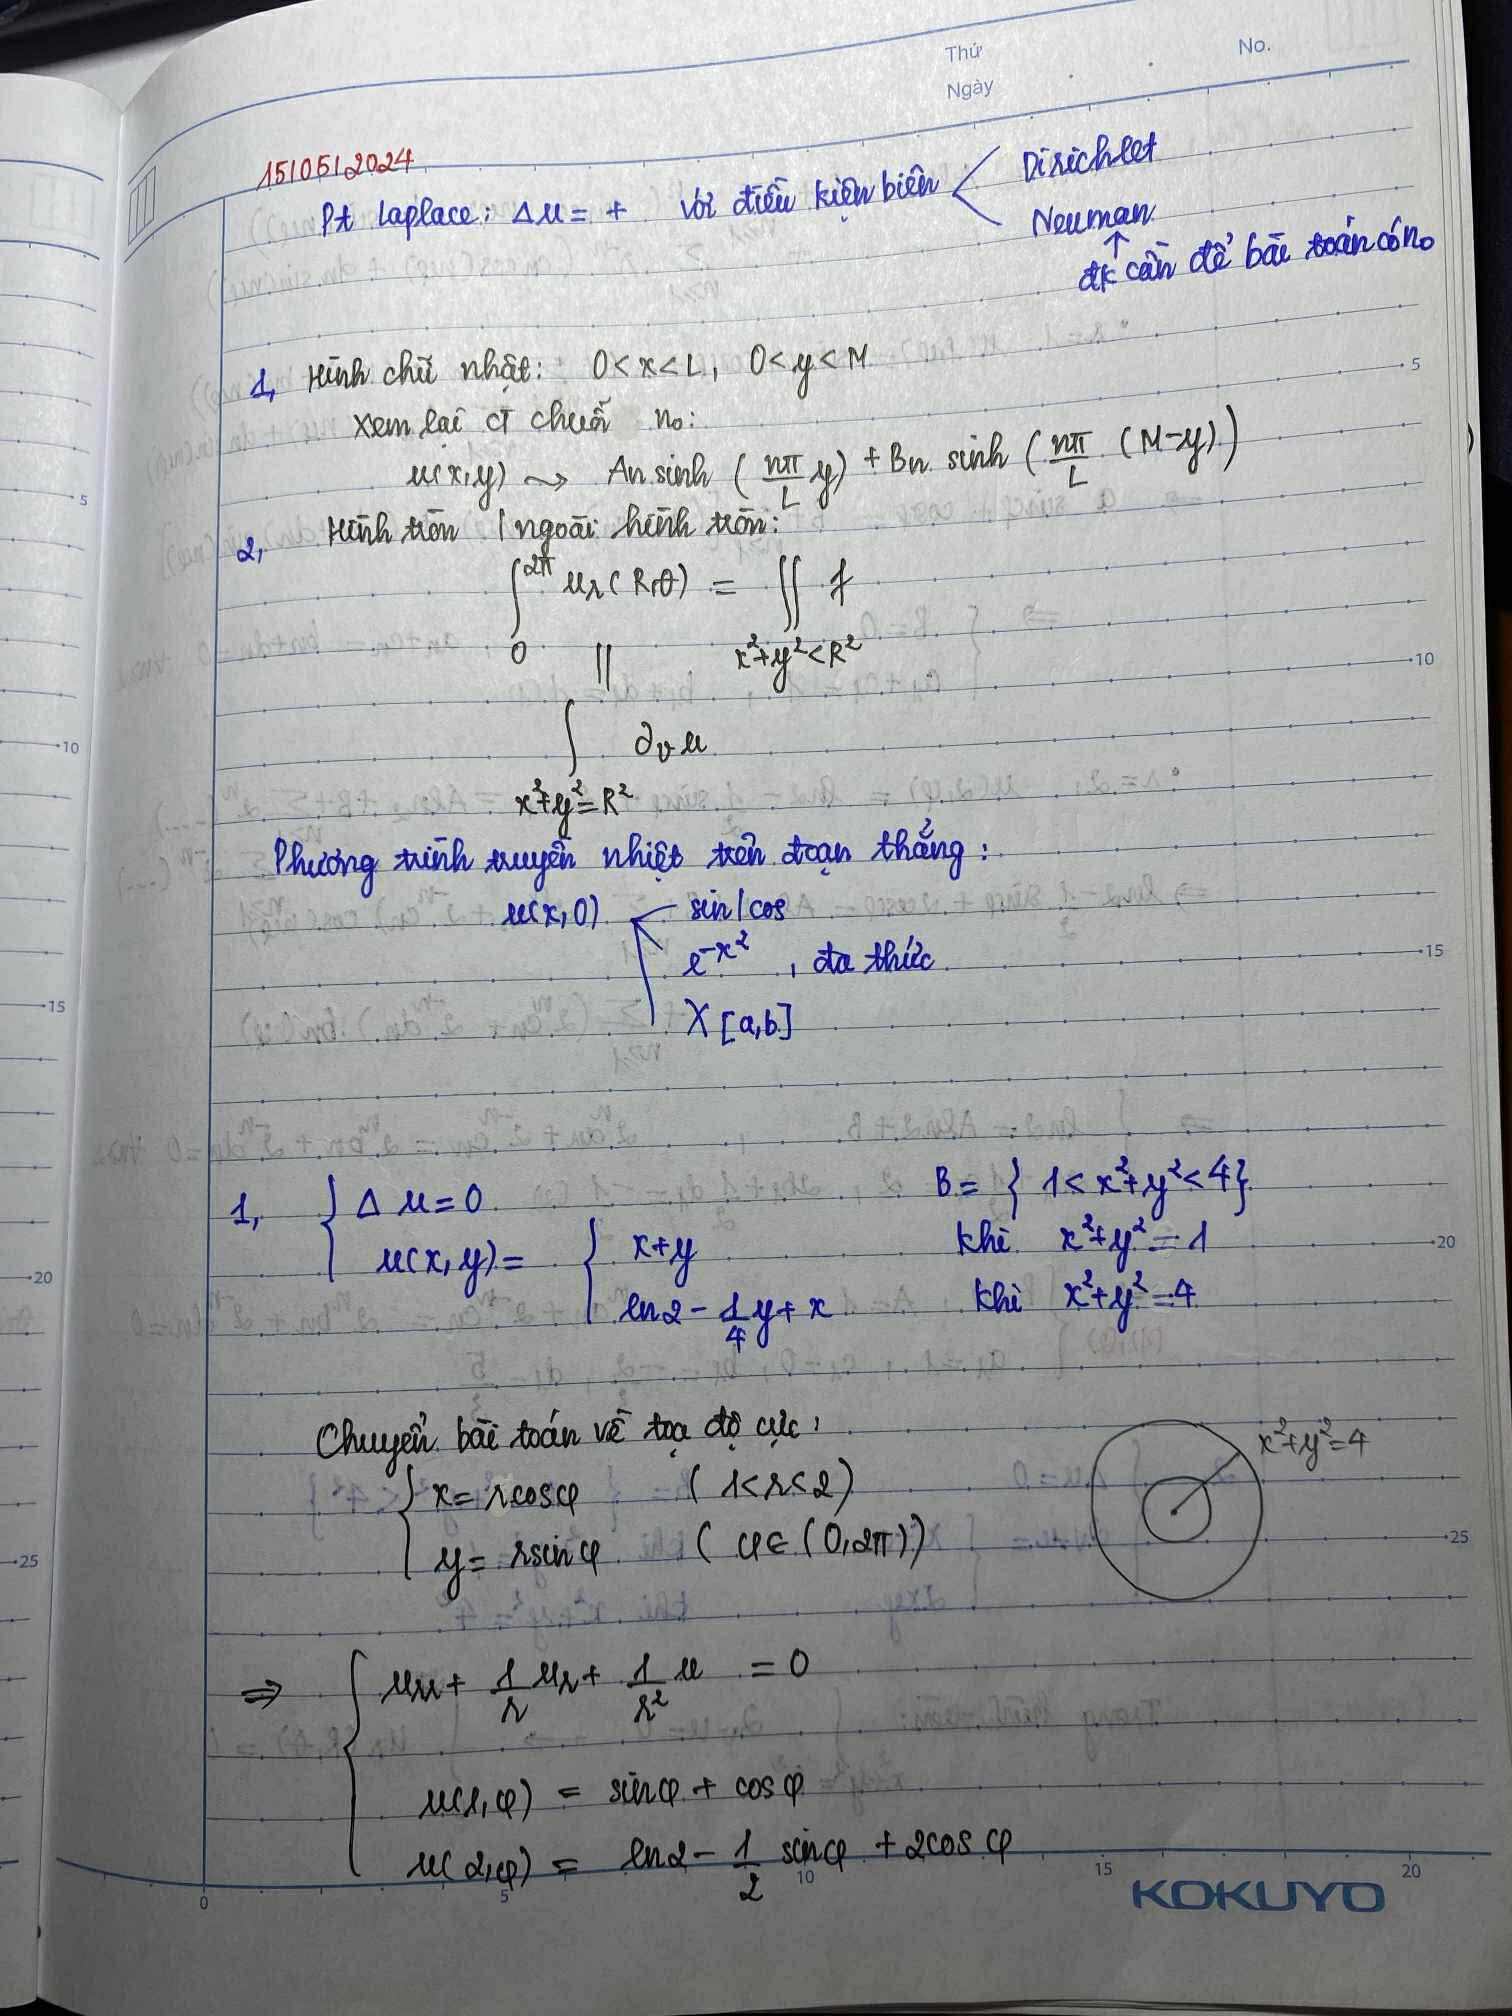 Thứ
No.
Ngày
15/05/2024
Pt Laplace: Δu = f với điều kiện biên
Dirichlet
Neuman
↑
đk cần để bài toán có no
1, Hình chữ nhật: 0<x<L, 0<y<M
Xem lại CT chuỗi no:
u(x,y) ⇝ An sinh (nπ/L y) + Bn sinh (nπ/L (M-y))
2, Hình tròn / ngoài hình tròn:
∫₀^2π ur(R,θ) = ∬ f
x²+y²<R²
||
∫ ∂νu
x²+y²=R²
Phương trình truyền nhiệt trên đoạn thẳng:
u(x,0)
sin/cos
e^-x², đa thức
χ[a,b]
1, { Δu=0 B= { 1<x²+y²<4}
u(x,y)= { x+y khi x²+y²=1
ln2 - 1/4 y + x khi x²+y²=4
Chuyển bài toán về tọa độ cực:
x²+y²=4
{ x= rcosφ (1<r<2)
y= rsinφ (φ∈(0,2π))
⇒ { urr + 1/r ur + 1/r² u = 0
u(1,φ) = sinφ + cosφ
u(2,φ) = ln2 - 1/2 sinφ + 2cosφ
KOKUYO